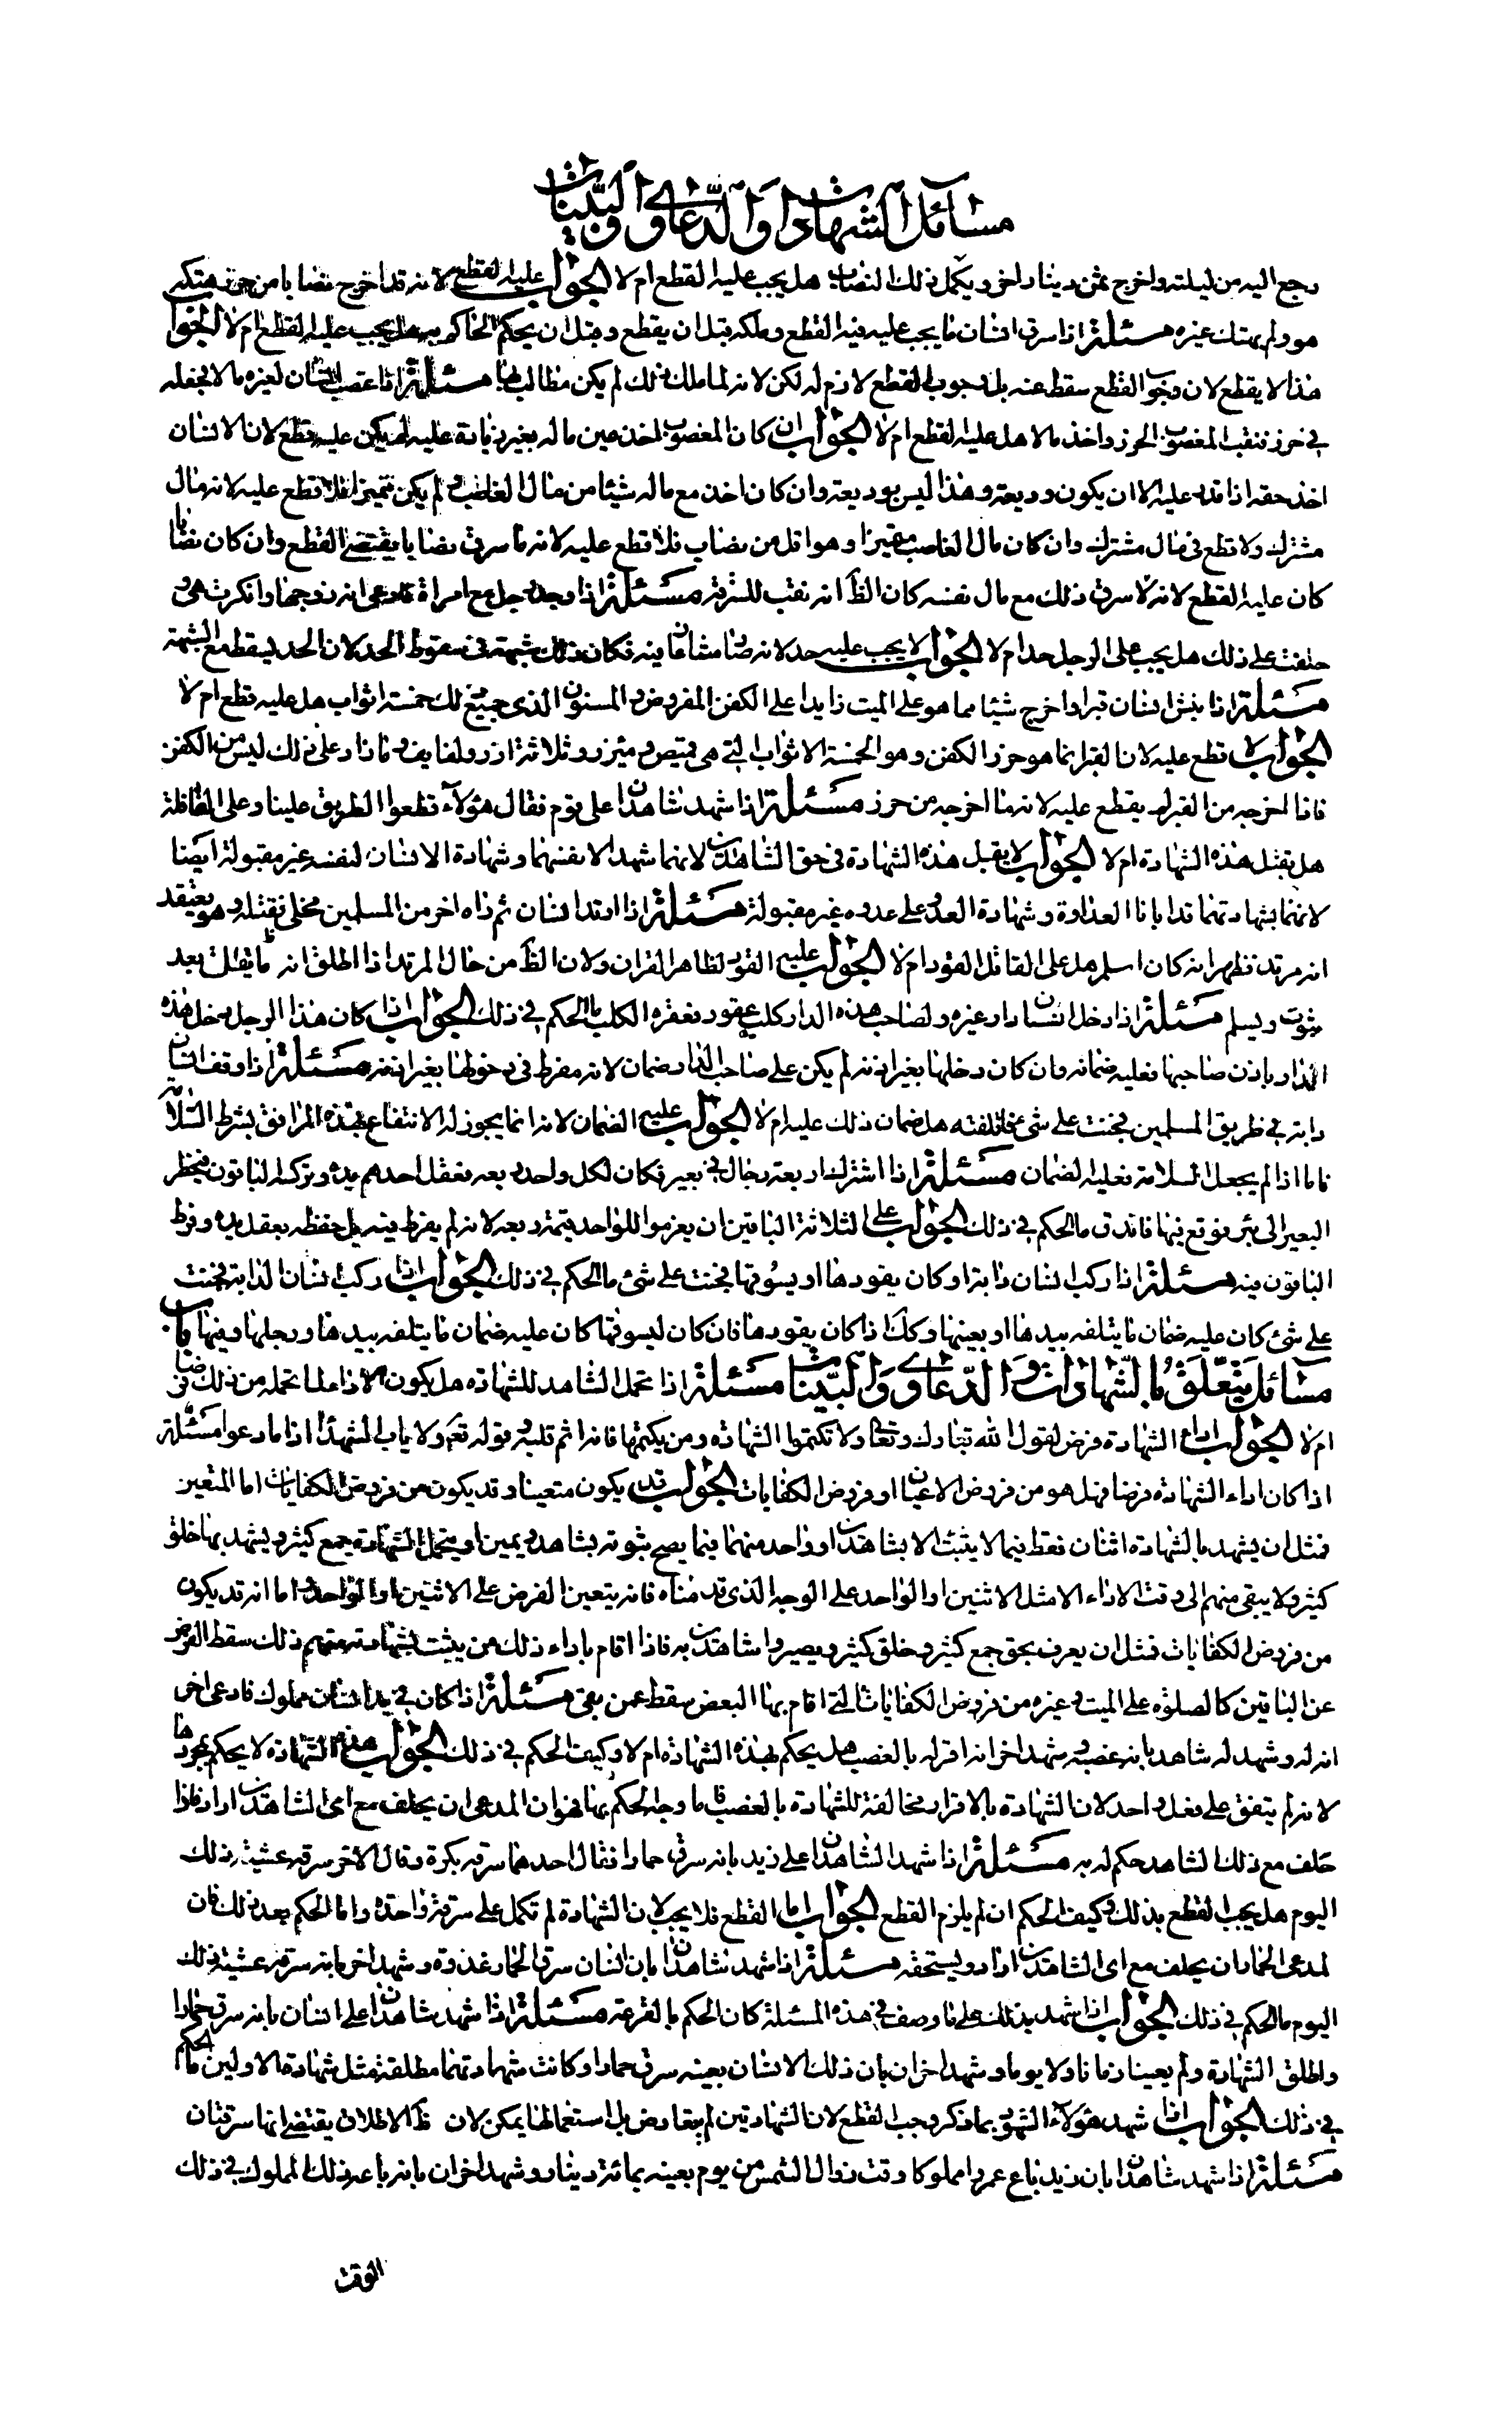 مسائل الشهادات والدعاوى والبينات
رجع اليه من ليلته واخرج ثمن دينار اخر ويكمل بذلك النصاب هل يجب عليه القطع ام لا الجواب عليه القطع لانه قد اخرج نصابا من حرز هتكه
هو ولم يهتك غيره مسئلة اذا سرق انسان ما يجب عليه فيه القطع وملكه قبل ان يقطع وقبل ان يحكم الحاكم به هل يجب عليه القطع ام لا الجواب
هذا لا يقطع لان وجوب القطع سقط عنه بل وجوب القطع لازم له لكن لانه لما ملك ذلك لم يكن مطالب بها مسئلة اذا غصب انسان لغيره مالا فجعله
في حرز فنقب المغصوب الحرز واخذ مالا هل عليه القطع ام لا الجواب ان كان المغصوب اخذ عين ماله بغير زيادة عليه لم يكن عليه قطع لان الانسان
اخذ حقه اذا قدر عليه الا ان يكون وديعة وهذا ليس بوديعة وان كان اخذ مع ماله شيئا من مال الغاصب ولم يكن متميزا فلا قطع عليه لانه مال
مشترك ولا قطع في مال مشترك وان كان مال الغاصب متميزا وهو اقل من نصاب فلا قطع عليه لانه ما سرق نصابا يقتضي القطع وان كان نصابا
كان عليه القطع لانه لا سرق ذلك مع مال نفسه كان الظ انه نقب للسرقة مسئلة اذا وجد رجل مع امراة فادعى انه زوجها وانكرت هي و
حلفت على ذلك هل يجب على الرجل حد ام لا الجواب لا يجب عليه حد لانه صار متداعيا فيه فكان ذلك شبهة في سقوط الحد لان الحد يسقط مع الشبهة
مسئلة اذا نبش انسان قبرا واخرج شيئا مما هو على الميت زايدا على الكفن المفروض و المسنون الذي جميع ذلك خمسة اثواب هل عليه قطع ام لا
الجواب لا قطع عليه لان القبر انما هو حرز الكفن وهو الخمسة الاثواب التي هي قميص و مئزر وثلاثة ازر ولفايف و ما زاد على ذلك ليس من الكفن
فاذا اخرجه من القبر لم يقطع عليه لانه ما اخرجه من حرز مسئلة اذا شهد شاهدان على قوم فقال هؤلاء قطعوا الطريق علينا وعلى القافلة
هل يقبل هذه الشهادة ام لا الجواب لا يقبل هذه الشهادة في حق الشاهدين لانهما شهدا لانفسهما وشهادة الانسان لنفسه غير مقبولة ايضا
لانهما بشهادتهما قد ابانا العداوة و شهادة العدو على عدوه غير مقبولة مسئلة اذا ارتد انسان ثم راه اخر من المسلمين مخلى فقتله وهو يعتقد
انه مرتد فظهر انه كان اسلم هل على القاتل القود ام لا الجواب عليه القود لظاهر القران ولان الظ من حال المرتد اذا اطلق انه ما يقتل بعد
يتوب و يسلم مسئلة اذا دخل انسان دار غيره ولصاحب هذه الدار كلب عقور فعقره الكلب ما الحكم في ذلك الجواب اذا كان هذا الرجل دخل هذه
الدار باذن صاحبها فعليه ضمانه وان كان دخلها بغير اذنه لم يكن على صاحب الدار ضمان لانه مفرط في دخولها بغير اذنه مسئلة اذا وقف انسان
دابته في طريق المسلمين فجنت على شي فاتلفته هل ضمان ذلك عليه ام لا الجواب عليه الضمان لانه انما يجوز له الانتفاع بهذه المرافق بشرط السلامة
فاما اذا لم يجعل السلامة فعليه الضمان مسئلة اذا اشترك اربعة رجال في بعير فكان لكل واحد ربعه فعقل احدهم يده وتركه الباقون فتخطر
البعير الى بئر فوقع فيها فاندق ما الحكم في ذلك الجواب على الثلاثة الباقين ان يغرموا للواحد قيمة ربعه لانه لم يفرط فيه بل حفظه بعقل يده وفرط
الباقون فيه مسئلة اذا ركب انسان دابة او كان يقودها او يسوقها فجنت على شئ ما الحكم في ذلك الجواب اذا ركب انسان الدابة فجنت
على شئ كان عليه ضمان ما يتلفه بيدها او بعينها وكك اذا كان يقودها فان كان يسوقها كان عليه ضمان ما يتلفه بيدها ورجلها وفيها باب
مسائل يتعلق بالشهادات والدعاوى والبينات مسئلة اذا تحمل الشاهد للشهادة هل يكون الاداء لما تحمله من ذلك فرضا
ام لا الجواب اداء الشهادة فرض لقول الله تبارك وتعالى ولا تكتموا الشهادة ومن يكتمها فانه اثم قلبه و قوله تعالى ولا ياب الشهداء اذا ما دعوا مسئلة
اذا كان اداء الشهادة فرضا فهل هو من فروض الاعيان او فروض الكفايات الجواب قد يكون متعينا وقد يكون من فروض الكفايات اما المتعين
فمثل ان يشهد بالشهادة اثنان فقط فيما لا يثبت الا بشاهدين او واحد منهما فيما يصح ثبوته بشاهد ويمين او يتحمل الشهادة جمع كثير و يشهد بها خلق
كثير ولا يبقى منهم الى وقت الاداء الا مثل الاثنين او الواحد على الوجه الذي قدمناه فانه يتعين الفرض على الاثنين او الواحد و اما انه قد يكون
من فروض الكفايات فمثل ان يعرف بحق جمع كثير و خلق كثير ويصيروا شاهدين به فاذا اقام باداء ذلك من يثبت بشهادته منهم ذلك سقط الفرض
عن الباقين كالصلوة على الميت و غيره من فروض الكفايات التي اقام بها البعض سقط عمن بقي مسئلة اذا كان في يد انسان مملوك فادعى اخر
انه له و شهد له شاهد بانه غصبه و شهد اخر انه اقر له بالغصب هل يحكم بهذه الشهادة ام لا وكيف الحكم في ذلك الجواب هذه الشهادة لا يحكم بمجردها
لانه لم يتفق على فعل واحد لان الشهادة بالاقرار مخالفة للشهادة بالغصب فاما وجه الحكم بها فهو ان المدعى ان يحلف مع اى الشاهدين اراد فاذا
حلف مع ذلك الشاهد حكم له به مسئلة اذا شهد الشاهدان على زيد بانه سرق حمارا فقال احدهما سرقه بكرة وقال الاخر سرقه عشية ذلك
اليوم هل يجب القطع بذلك و كيف الحكم ان لم يلزم القطع الجواب اما القطع فلا يجب لان الشهادة لم تكمل على سرقة واحدة واما الحكم بعد ذلك فان
لمدعى الحمار ان يحلف مع اى الشاهدين اراد و يستحقه مسئلة اذا شهد شاهدان بان انسان سرق الحمار غدوة و شهد اخر بانه سرقه عشية ذلك
اليوم ما الحكم في ذلك الجواب اذا شهد بذلك على ما وصف في هذه المسئلة كان الحكم بالقرعة مسئلة اذا شهد شاهدان على انسان بانه سرق حمارا
واطلق الشهادة ولم يعينا زمانا ولا يوما و شهد اخران بان ذلك الانسان بعينه سرق حمارا وكانت شهادتهما مطلقة مثل شهادة الاولين ما الحكم
في ذلك الجواب اذا شهد هؤلاء الشهود بما ذكر وجب القطع لان الشهادتين لم يتعارض بل استعمالها يمكن لان ظ الاطلاق يقتضي انها سرقتان
مسئلة اذا شهد شاهدان بان زيد باع عمروا مملوكا وقت زوال الشمس من يوم بعينه بمائة دينار و شهد اخران بانه باعه ذلك المملوك في ذلك
الوقت